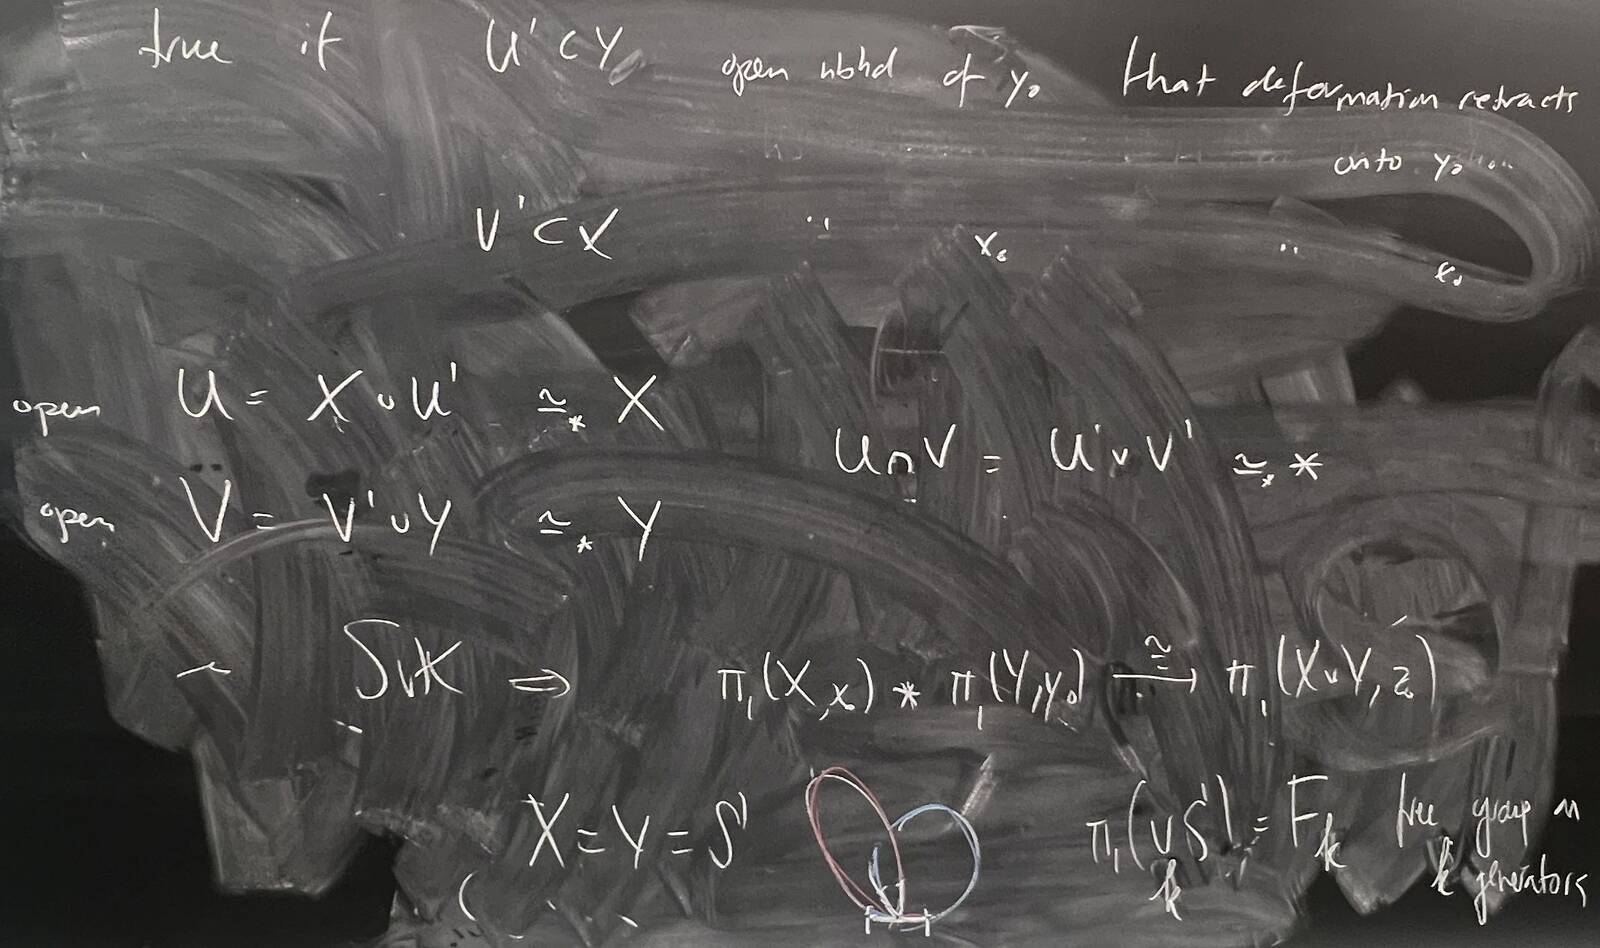 true if U' ⊂ Y open nbhd of y₀ that deformation retracts
onto y₀
V' ⊂ X " x₀ " x₀
open U = X ∪ U' ≃* X
U ∩ V = U' ∨ V' ≃* *
open V = V' ∪ Y ≃* Y
~ SvK ⇒ π₁(X, x₀) * π₁(Y, y₀) ≅→ π₁(X ∨ Y, z₀)
X = Y = S¹
π₁(∨ₖ S¹) = Fₖ free group on
k generators